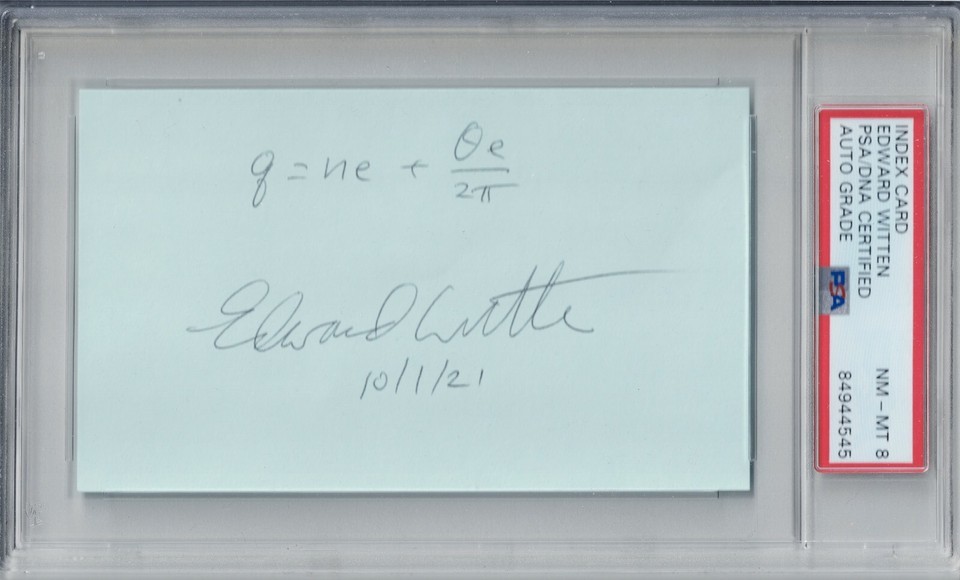 q = ne + θe/2π
Edward Witten
10/1/21
INDEX CARD
EDWARD WITTEN
PSA/DNA CERTIFIED
AUTO GRADE
NM - MT 8
84944545
PSA